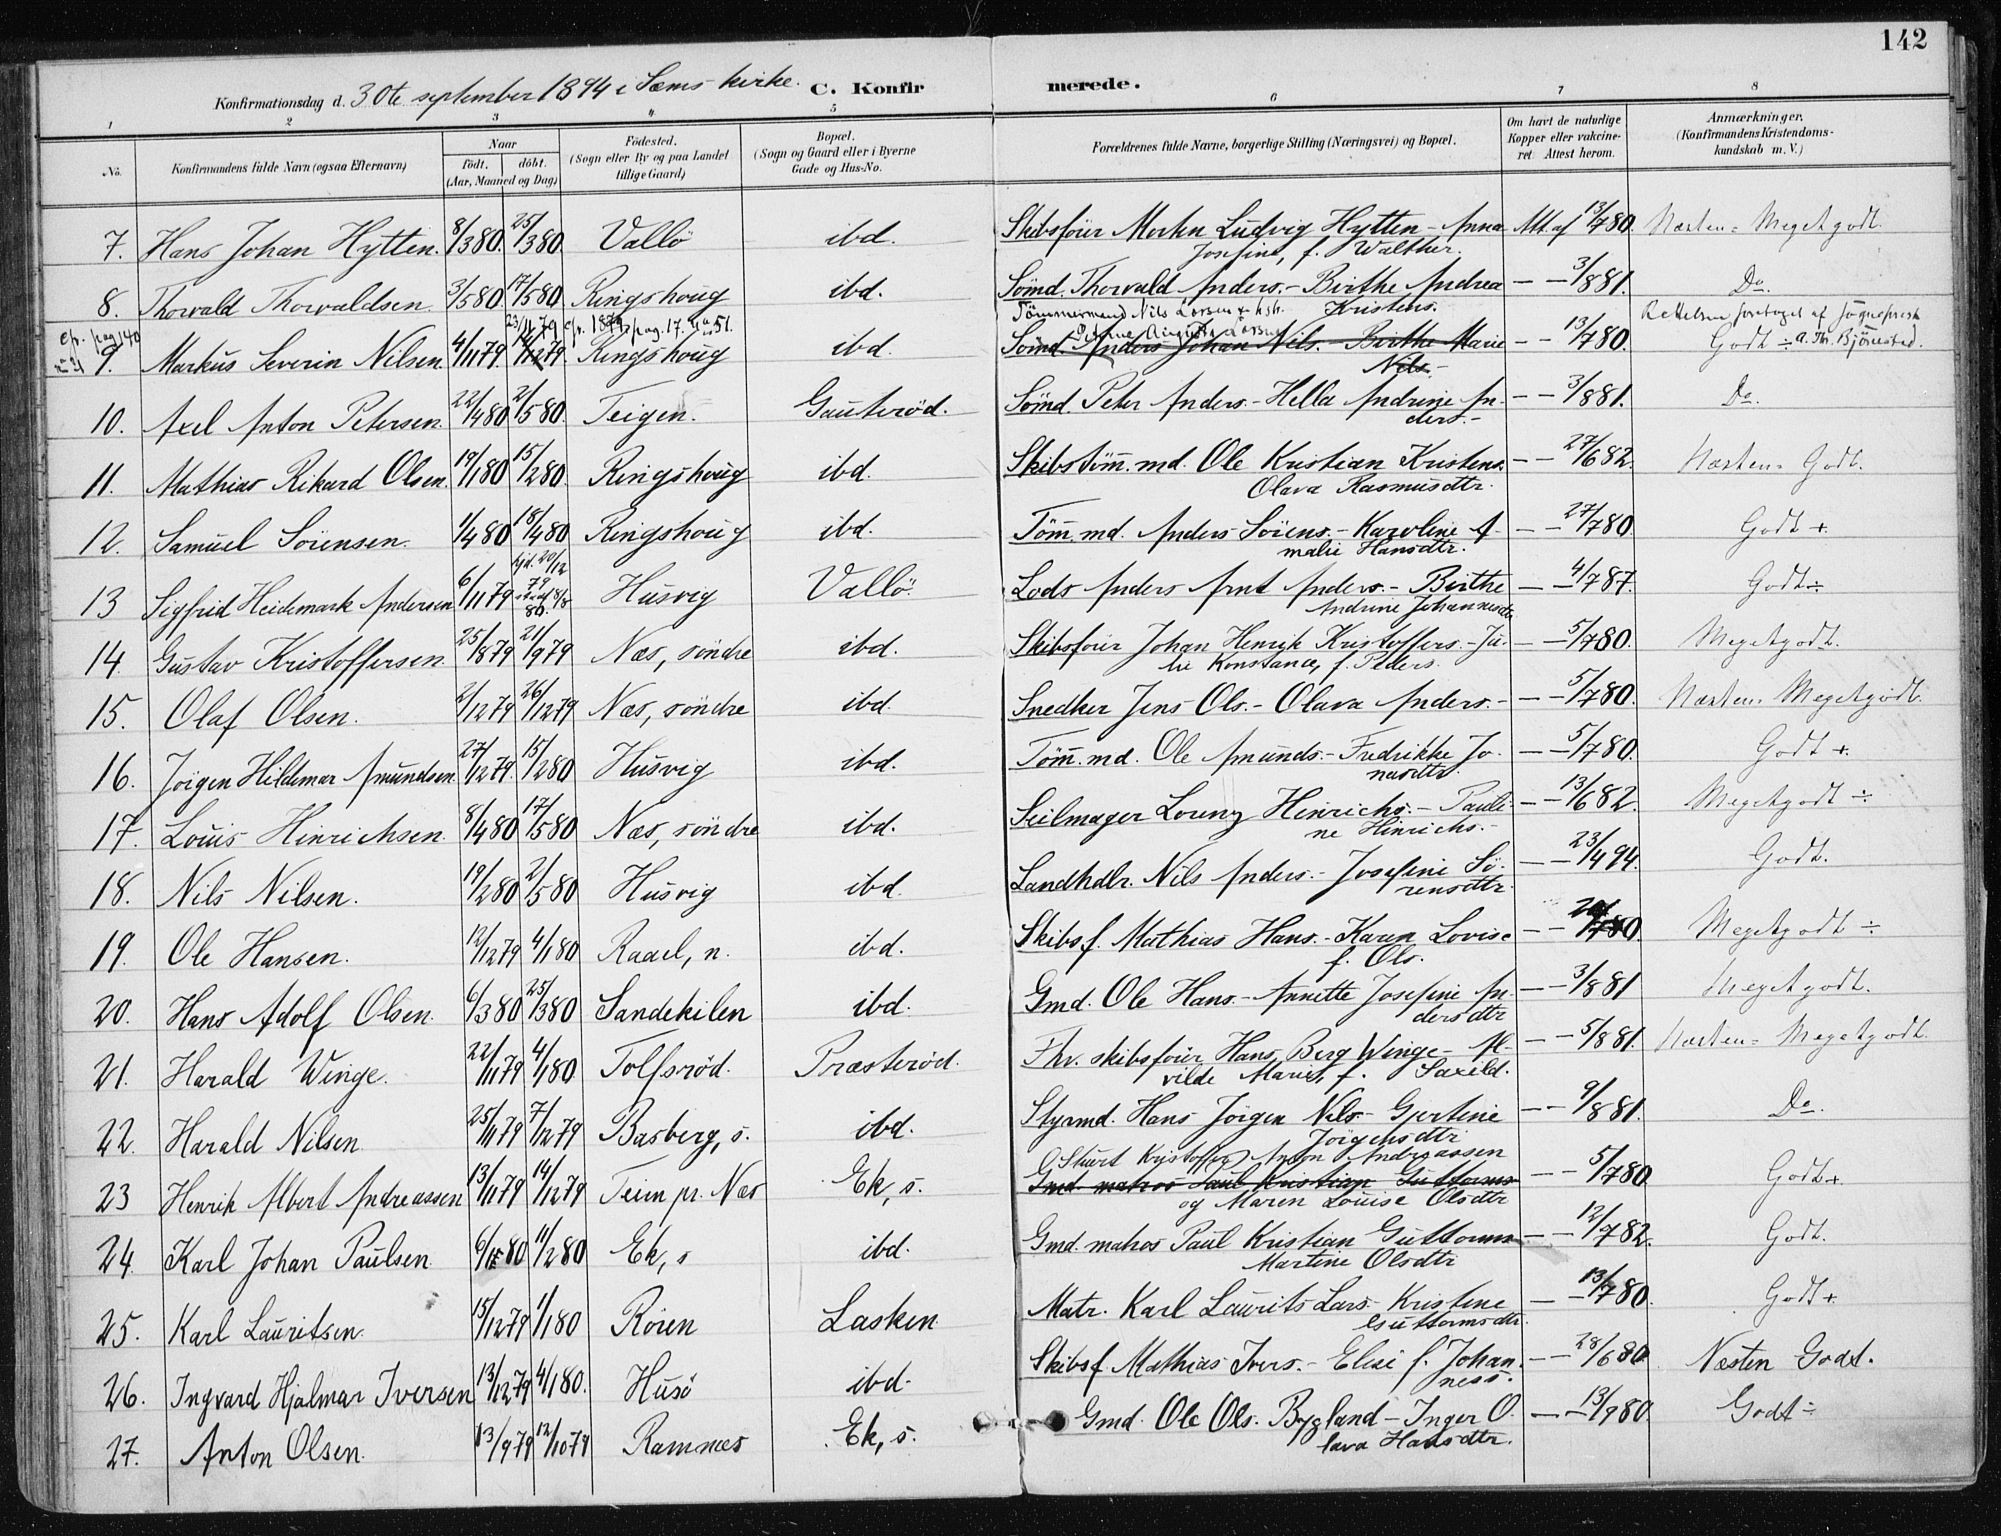 142
Konfirmationsdag d. 30te september 1894 i Sæms kirke. C. Konfirmerede.
1 2 3 4 5 6 7 8
No. Konfirmandens fulde Navn (ogsaa Efternavn) Naar født, døbt. (Aar, Maaned og Dag) Fødested. (Sogn eller By og paa Landet tillige Gaard) Bopæl. (Sogn og Gaard eller i Byerne Gade og Hus-No. Forældrenes fulde Navne, borgerlige Stilling (Næringsvei) og Bopæl. Om havt de naturlige Kopper eller vakcineret. Attest herom. Anmærkninger. (Konfirmandens Kristendomskundskab m. V.)
7. Hans Johan Hytten. 8/3 80. 25/3 80. Vallö ibd. Skibsförer Morten Ludvig Hytten - Anna Att. af 13/7 80. Næsten = Megetgodt.
Josefine, f. Walther.
8. Thorvald Thorvaldsen. 3/5 80. 17/5 80. Ringshoug ibd. Sömd. Thorvald Anders. - Birthe Andrea — — 3/8 81. Do.
Kristens.
cfr. pag 140 23/11 79 cfr. 1879, pag. 17. 51. Tömmermand Nils Larsen & hst. Rettelsen foretaget af Sogneprest
9. Markus Severin Nilsen. 4/11 79. 12 79. Ringshoug ibd. Sömd. Anders Johan Nils. Birthe Marie — — 13/7 80. Godt ÷ A. Th. Bjönested.
Nils. -
10. Axel Anton Petersen. 22/4 80 2/5 80. Teigen. Gauteröd. Sömd. Peter Anders. - Hella Andrine An- — — 3/8 81. Do.
ders. -
11. Mathias Rikard Olsen. 19/1 80 15/2 80. Ringshoug ibd. Skibstöm. md. Ole Kristian Kristens. — — 27/6 82. Næsten = Godt.
Olava Rasmusdtr.
12. Samuel Sörensen. 1/4 80 18/4 80 Ringshoug ibd. Töm. md. Anders Sörens. - Karoline A- — — 27/7 80. Godt +.
malie Hansdtr.
13 Sigfrid Heidemark Andersen 6/11 79 hjd. 20/12 79 8/8 80. Husvig Vallö. Lods Anders Arnt Anders. - Birthe — — 4/7 87. Godt ÷
Andrine Johannesdtr
14. Gustav Kristoffersen. 25/8 79 21/9 79 Næs, söndre ibd. Skibsförer Johan Henrik Kristoffers. - Ju- — — 5/7 80. Megetgodt.
lie Konstance, f. Peders.
15. Olaf Olsen. 2/12 79 26/12 79 Næs, söndre ibd. Snedker Jens Ols. - Olava Anders. - — — 5/7 80. Næsten = Megetgodt.
16. Jörgen Hildemar Amundsen. 27/12 79. 15/2 80 Husvig ibd. Töm. md. Ole Amunds. - Fredrikke Jo- — — 5/7 80. Godt +.
nasdtr.
17. Louis Hinrichsen. 8/4 80 17/5 80. Næs, söndre ibd. Seilmager Lorenz Henrichs. - Pauli- — — 13/6 82. Megetgodt ÷
ne Hinrichs. -
18. Nils Nilsen. 19/2 80 2/5 80 Husvig ibd. Landhdlr. Nils Anders. - Josefine Sö- — — 23/4 94. Godt.
rensdtr.
19. Ole Hansen. 12/12 79 4/1 80 Raael, n. ibd. Skibsf. Mathias Hans. - Karen Lovise — — /7 80. Megetgodt ÷
f. Ols.
20. Hans Adolf Olsen. 6/3 80 25/3 80 Sandekilen ibd. Gmd. Ole Hans. - Annette Josefine An- — — 3/8 81 Megetgodt.
dersdtr
21. Harald Winge. 22/11 79 4/1 80 Tolfsröd. Præsteröd. Fhv. skibsförer Hans Berg Winge - Al- — — 5/8 81. Næsten = Megetgodt.
vilde Marie, f. Saxild.
22. Harald Nilsen 25/11 79 7/12 79 Basberg, s. ibd. Styrmd. Hans Jörgen Nils. - Gjertine — — 9/8 81. Do.
Jörgensdtr
Kristoffer Anton Andreassen
23 Henrik Albert Andreassen 13/11 79 14/12 79 Teien pr. Næs Ek, s. Gmd. matros Paul Kristian Guttorms — — 5/7 80 Godt +
og Maren Louise Olsdtr
24. Karl Johan Paulsen. 6/1 80 11/2 80 Ek, s ibd. Gmd. matros Paul Kristian Guttorms — — 12/7 82. Godt.
Martine Olsdtr
25. Karl Lauritsen. 15/12 79 1/1 80 Rören Lasken Matr. Karl Laurits Lars. Kristine — — 13/7 80. Godt +
Guttormsdtr.
26. Ingvard Hjalmar Iversen 13/12 79 4/1 80. Husö ibd. Skibsf. Mathias Ivers. - Elise f. Johan- — — 28/6 80 Næsten Godt.
ness.
27. Anton Olsen. 13/9 79 12/10 79 Ramnes Ek, s. Gmd. Ole Ols. Bygland - Inger O- — — 13/9 80. Godt ÷
lava Hansdtr.